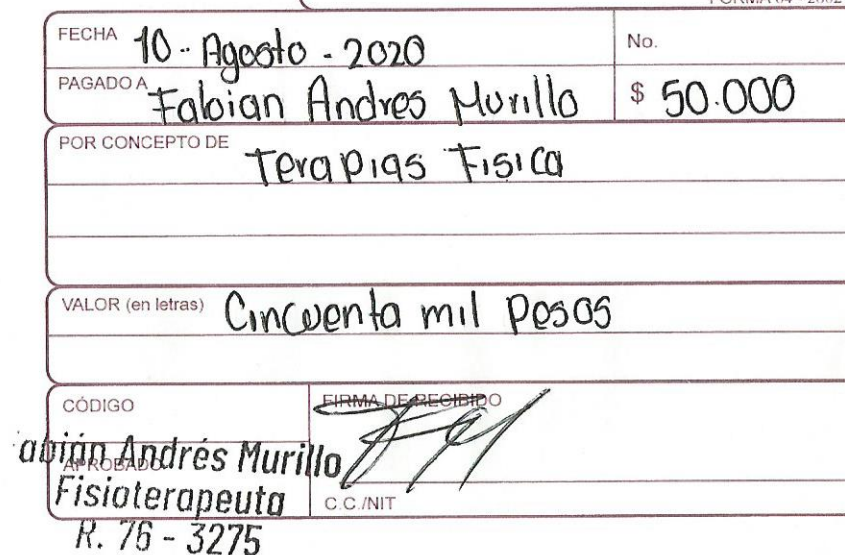 FORMA 04 - 2002
FECHA 10 - Agosto - 2020
No.
PAGADO A Fabian Andres Murillo
$ 50.000
POR CONCEPTO DE Terapias Fisica
VALOR (en letras) Cincuenta mil Pesos
CÓDIGO
FIRMA DE RECIBIDO
APROBADO
abián Andrés Murillo
Fisioterapeuta
C.C./NIT
R. 76 - 3275